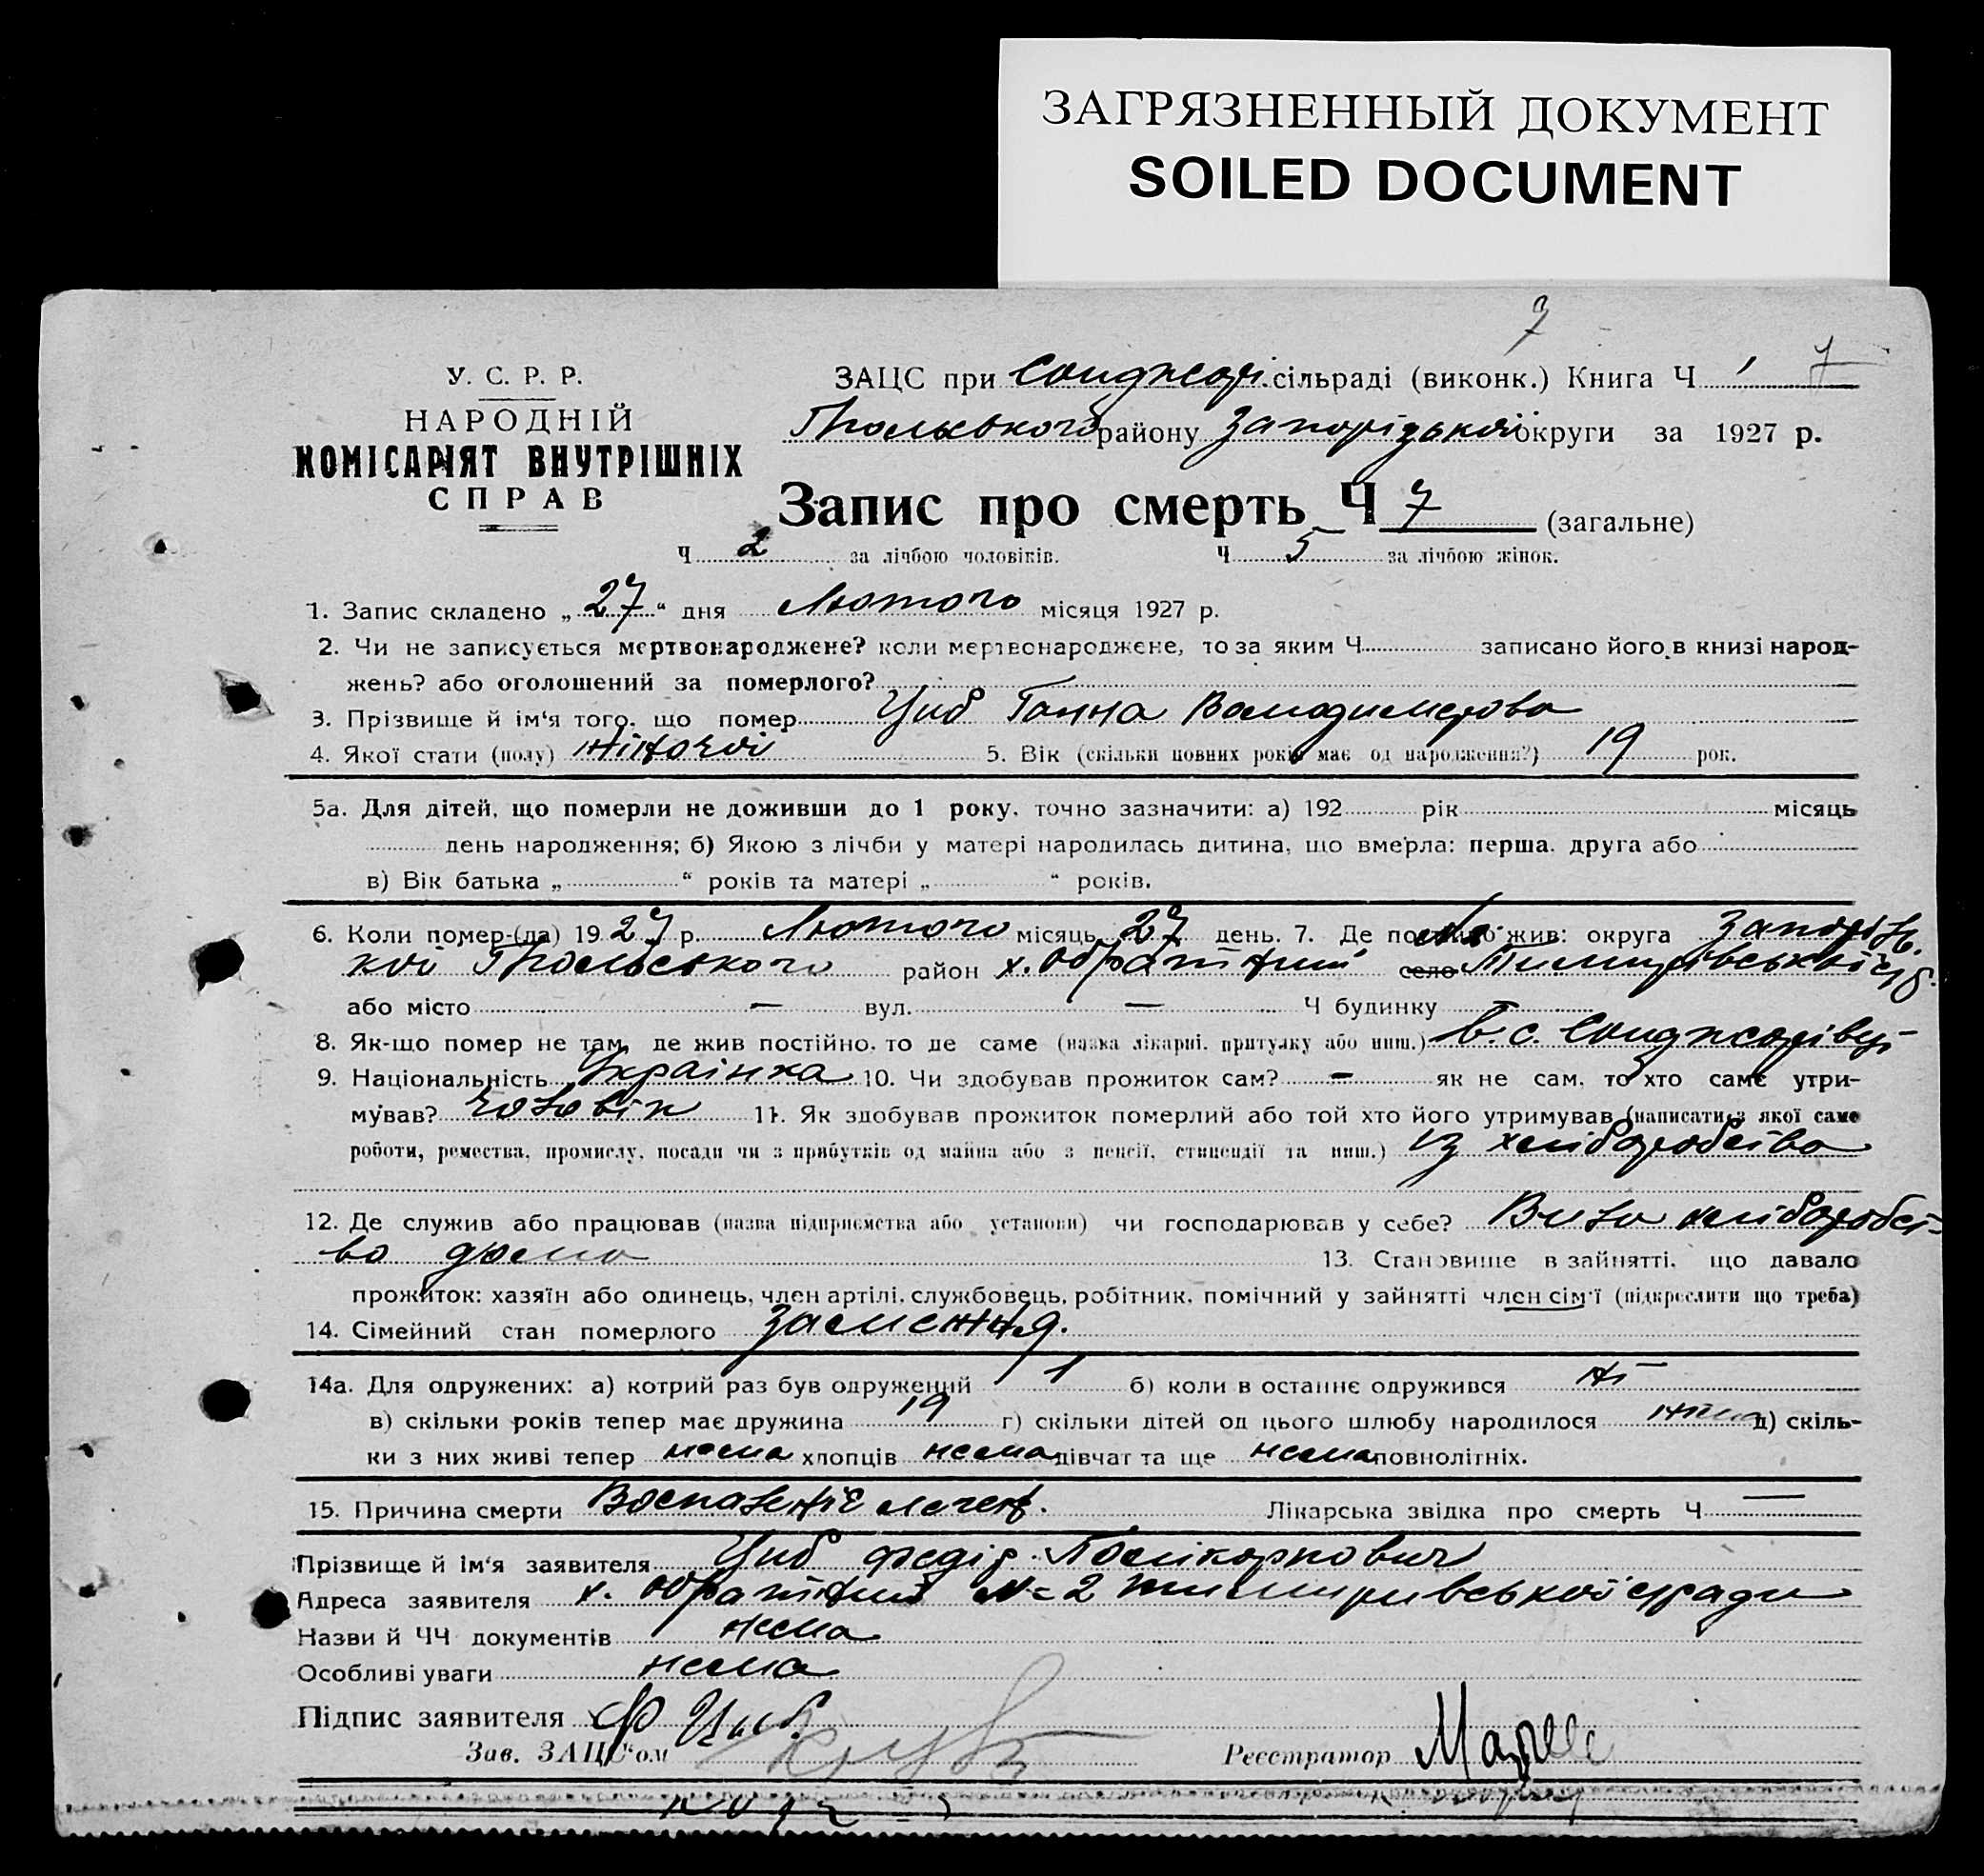 ЗАГРЯЗНЕННЫЙ ДОКУМЕНТ
SOILED DOCUMENT
7
У. С. Р. Р.
НАРОДНІЙ
КОМІСАРІЯТ ВНУТРІШНІХ
СПРАВ
ЗАЦС при сільраді (виконк.) Книга Ч 1 7
району Запорізькой округи за 1927 р.
Запис про смерть Ч 7 (загальне)
Ч 2 за лічбою чоловіків. Ч 5 за лічбою жінок.
1. Запис складено „27“ дня Лютого місяця 1927 р.
2. Чи не записується мертвонароджене? коли мертвонароджене, то за яким Ч записано його в книзі народ-
жень? або оголошений за померлого?
3. Прізвище й ім'я того, що помер Циб Ганна Володимерова
4. Якої стати (полу) жіночоі 5. Вік (скільки повних років має од народження?) 19 рок.
5а. Для дітей, що померли не доживши до 1 року, точно зазначити: а) 192 рік місяць
день народження; б) Якою з лічби у матері народилась дитина, що вмерла: перша, друга або
в) Вік батька „ “ років та матері „ “ років.
6. Коли помер-(ла) 1927 р. Лютого місяць 27 день. 7. Де постійно жив: округа Запорізь-
кої район х. село
або місто — вул. — Ч будинку —
8. Як-що помер не там, де жив постійно, то де саме (назва лікарні, притулку або инш.) в. с.
9. Національність Українка 10. Чи здобував прожиток сам? — як не сам, то хто саме утри-
мував? чоловік 11. Як здобував прожиток померлий або той хто його утримував (написати з якої саме
роботи, ремества, промислу, посади чи з прибутків од майна або з пенсії, стипендії та инш.) из хліборобства
12. Де служив або працював (назва підприємства або установи) чи господарював у себе? Вила хліборобст-
во дома 13. Становище в зайнятті, що давало
прожиток: хазяїн або одинець, член артілі, службовець, робітник, помічний у зайнятті член сім'ї (підкреслити що треба)
14. Сімейний стан померлого замежня.
14а. Для одружених: а) котрий раз був одружений 1 б) коли в останнє одружився
в) скільки років тепер має дружина 19 г) скільки дітей од цього шлюбу народилося д) скіль-
ки з них живі тепер нема хлопців нема дівчат та ще нема повнолітніх.
15. Причина смерти Воспаленіе легенз. Лікарська звідка про смерть Ч —
Прізвище й ім'я заявителя Циб Федір Полікарпович
Адреса заявителя х. № 2
Назви й ЧЧ документів нема
Особливі уваги нема
Підпис заявителя Ф Циб
Зав. ЗАЦС'ом
Реєстратор